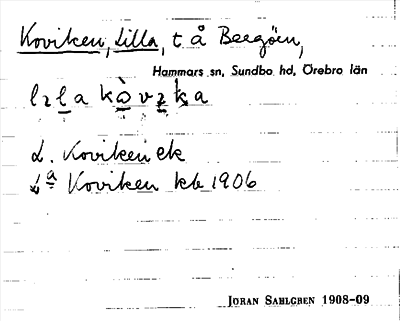 Koviken, Lilla, t å Bergön,
Hammars sn, Sundbo hd, Örebro län
lɩla kòvɩka
L. Koviken ek
La Koviken kb 1906
JÖRAN SAHLGREN 1908-09